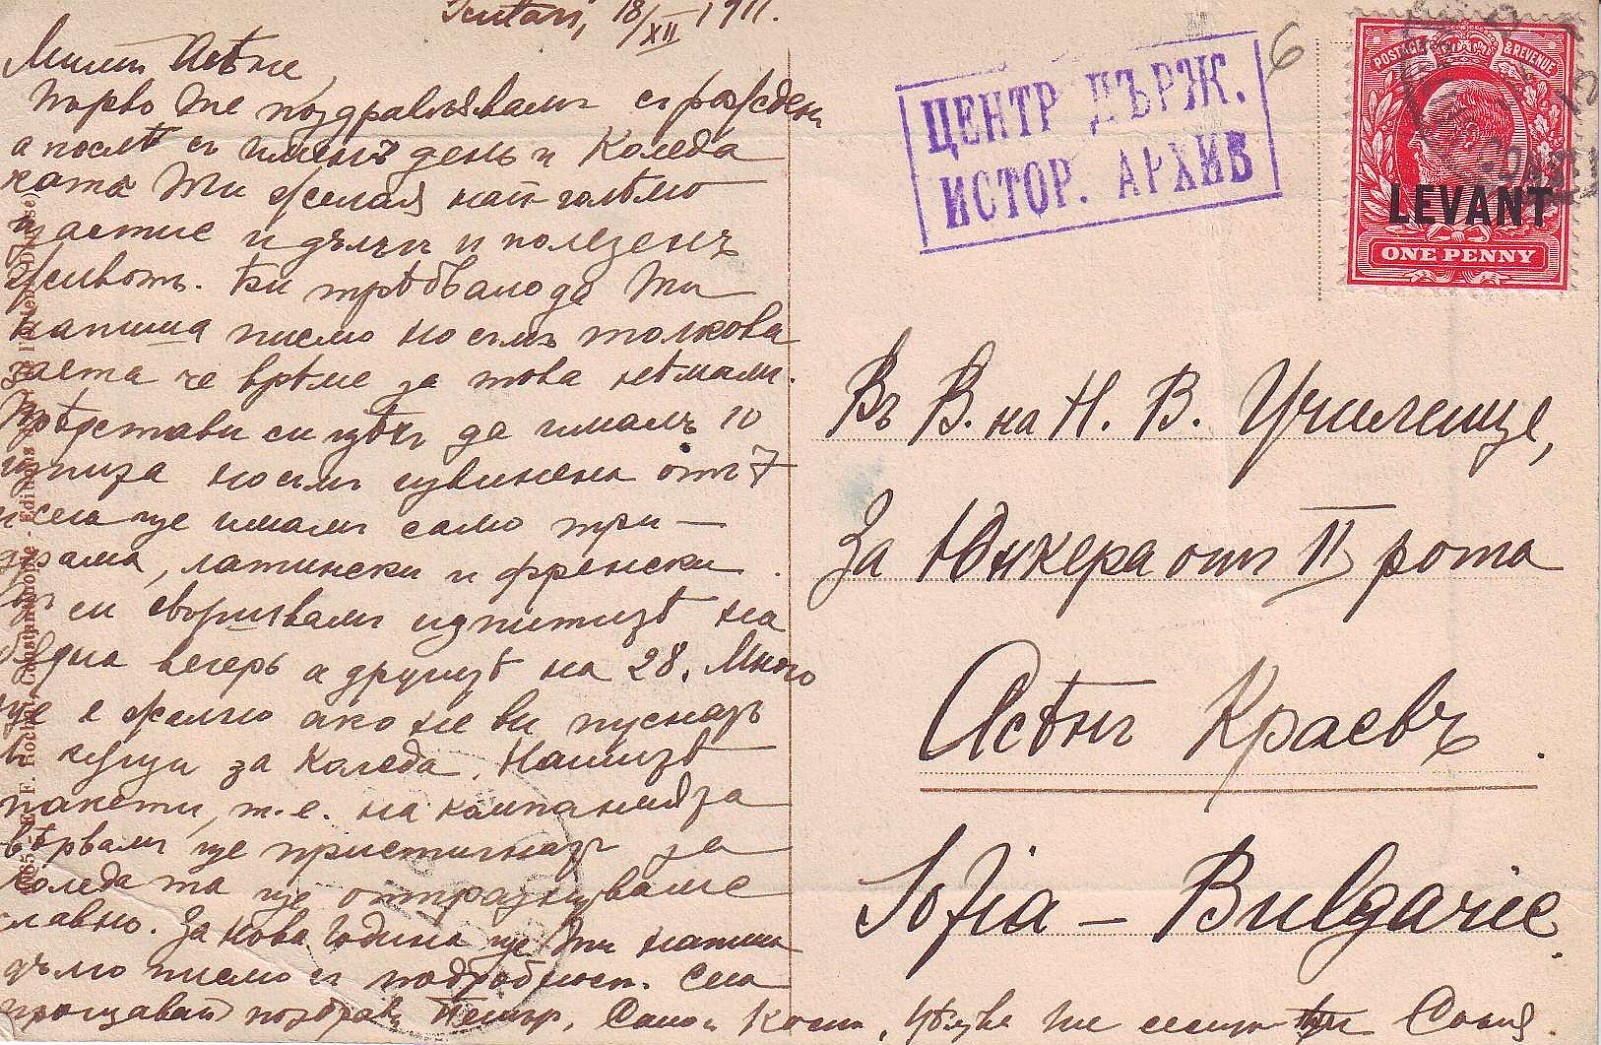 Scutari, 18/XII 1911.
Милий Асѣне,
Първо те поздравлявамъ съ рождени
а послѣ съ именъ день и Коледа
като ти желая най-голѣмо
щастие и дълъгъ и полезенъ
животъ. Би трѣбвало да ти
напиша писмо но съмъ толкова
заета че врѣме за това нѣмамъ.
Прѣдстави си щѣхъ да имамъ 10
изпита но съмъ извинена отъ 7
и сега ще имамъ само три
драма, латински и френски.
си свършвамъ изпититѣ на
вечерь а другитѣ на 28. Много
ще е жално ако не ви пуснатъ
въ кѫщи за Коледа. Нашитѣ
пакети, т.е. на компанията
вѣрвамъ ще пристигнатъ за
Коледа та ще отпразнуваме
славно. За нова година ще ти напиша
дълго писмо съ подробност. Сега
прощавай поздрави Петър, Сашо и Кочо, цѣлува те сестра ти Соня.
ЦЕНТР ДЪРЖ.
ИСТОР. АРХИВ
6
POSTAGE & REVENUE
LEVANT
ONE PENNY
Въ В. на Н. В. Училище,
За Юнкера отъ II рота
Асѣнъ Краевъ.
Sofia – Bulgarie.